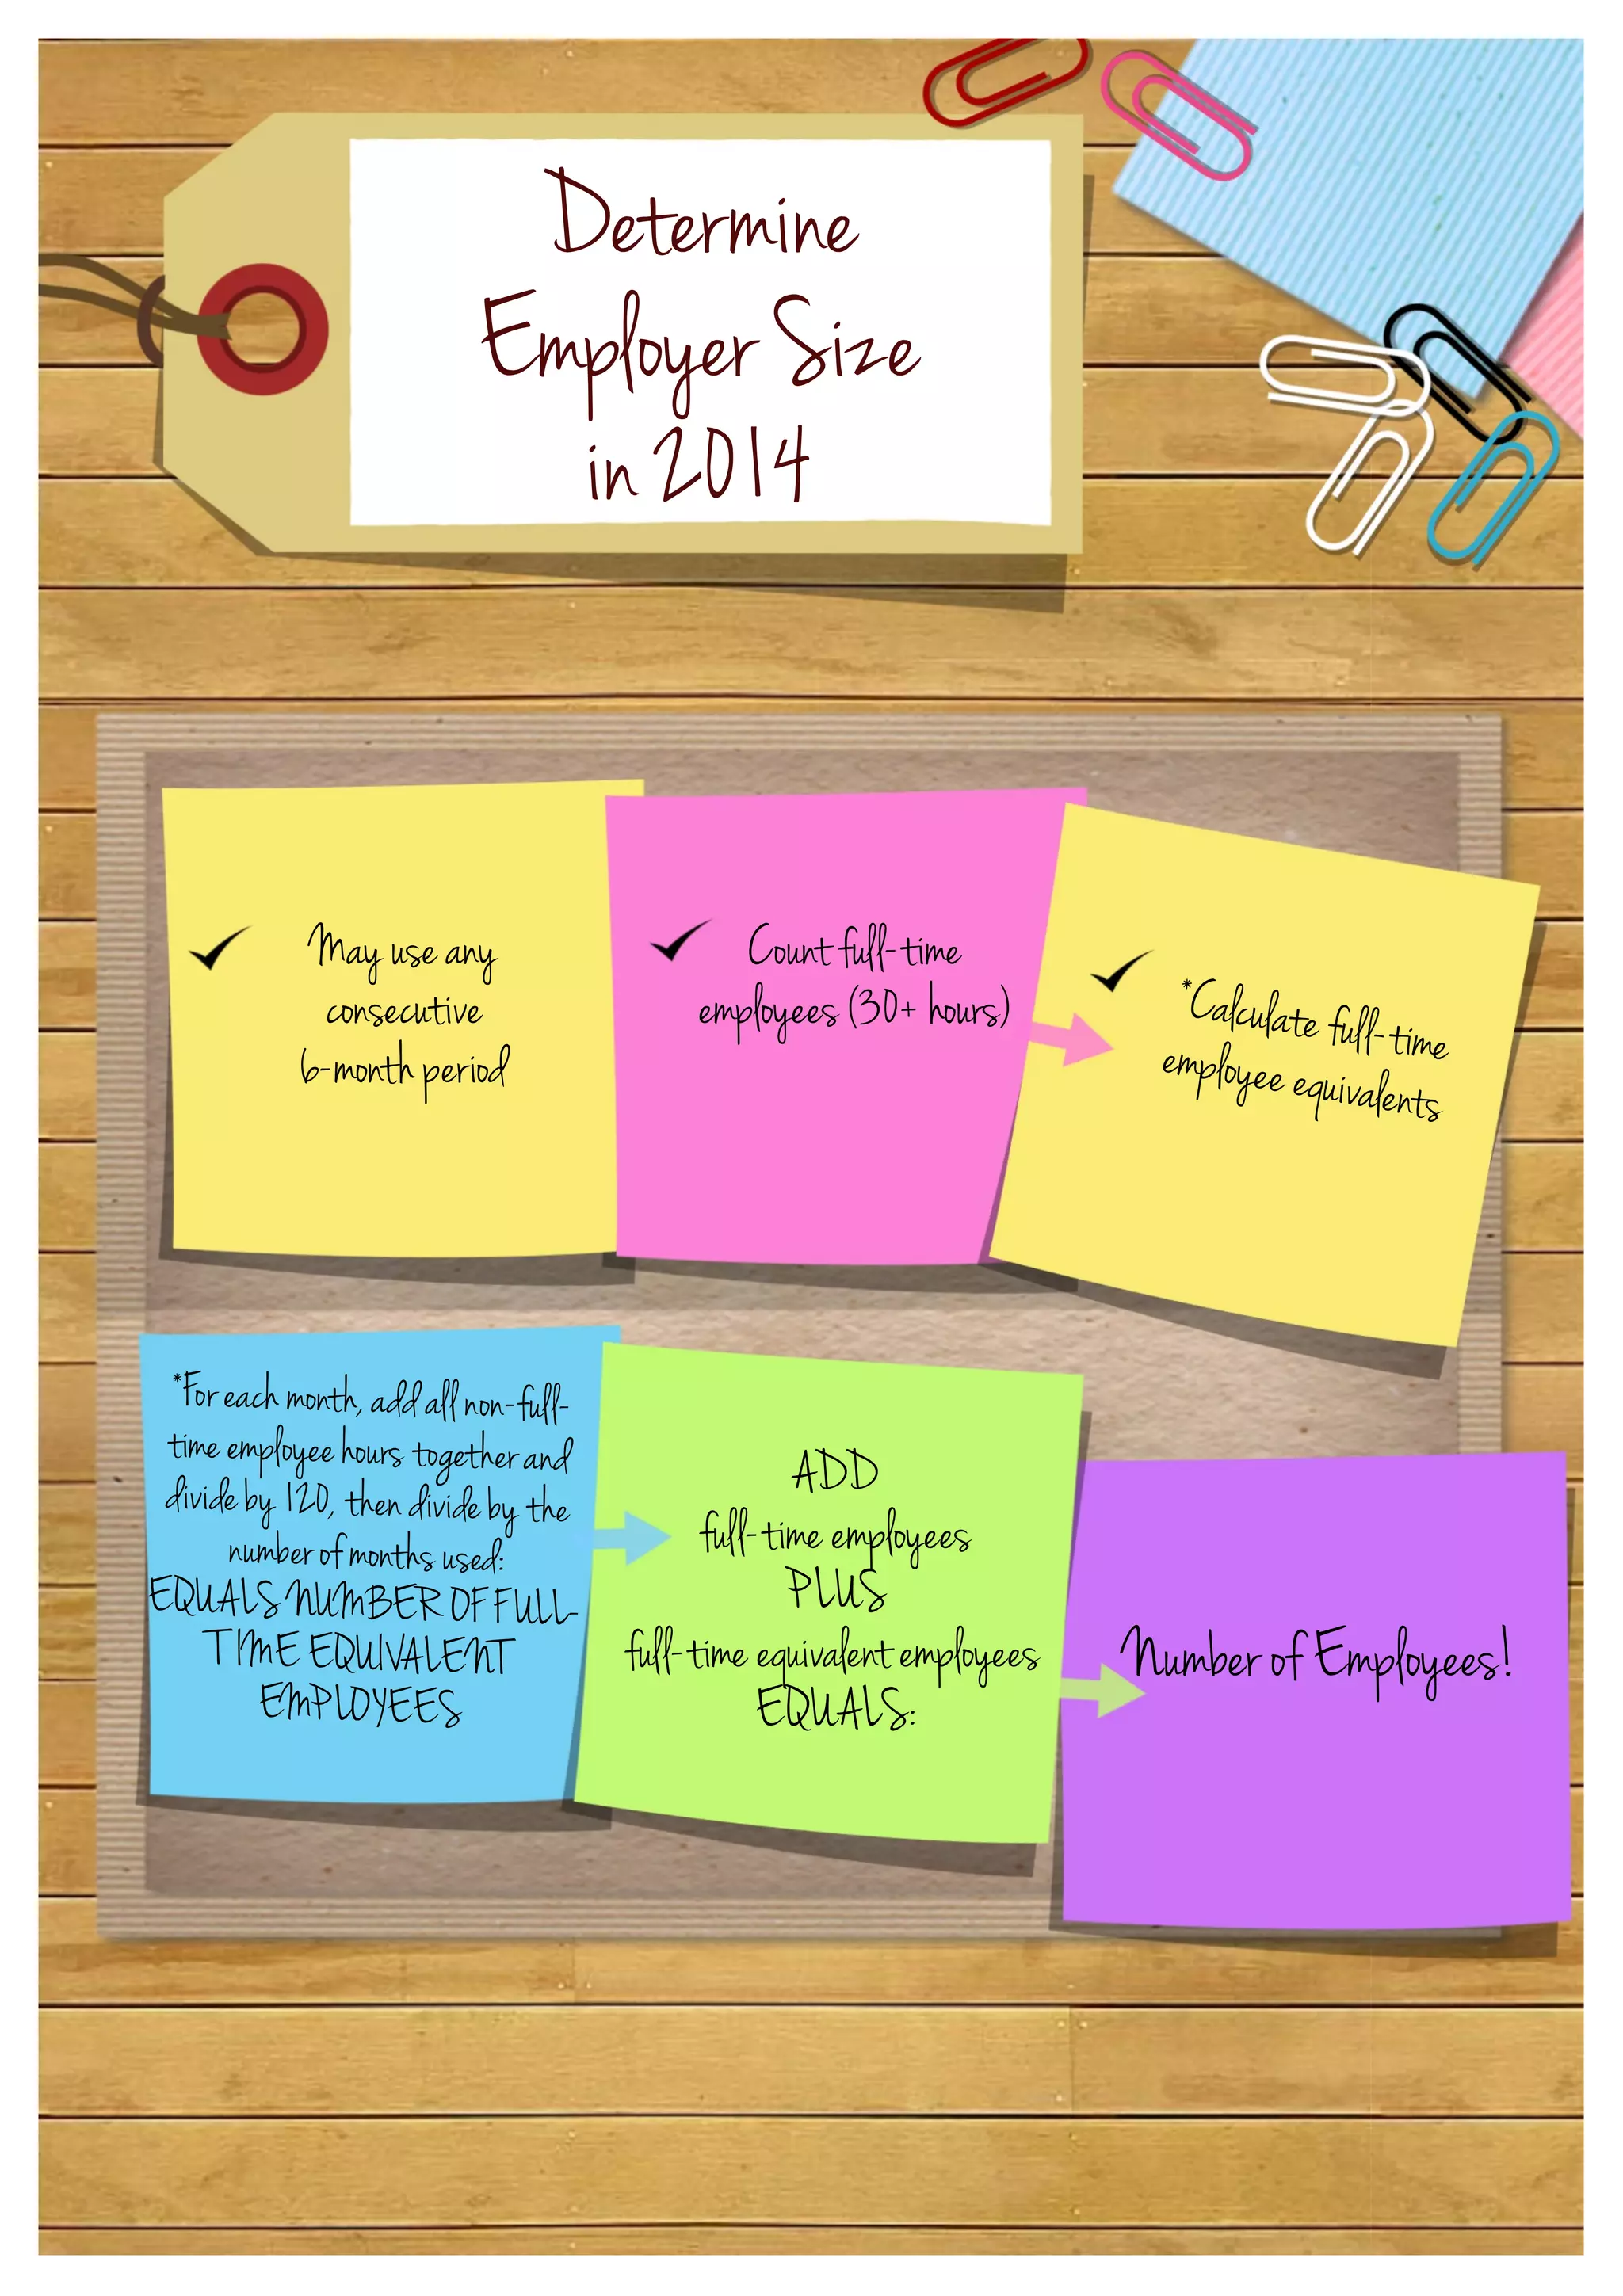 Determine
Employer Size
in 2014
May use any
consecutive
6-month period
Count full-time
employees (30+ hours)
*Calculate full-time
employee equivalents
*For each month, add all non-full-
time employee hours together and
divide by 120, then divide by the
number of months used:
EQUALS NUMBER OF FULL-
TIME EQUIVALENT
EMPLOYEES
ADD
full-time employees
PLUS
full-time equivalent employees
EQUALS:
Number of Employees!